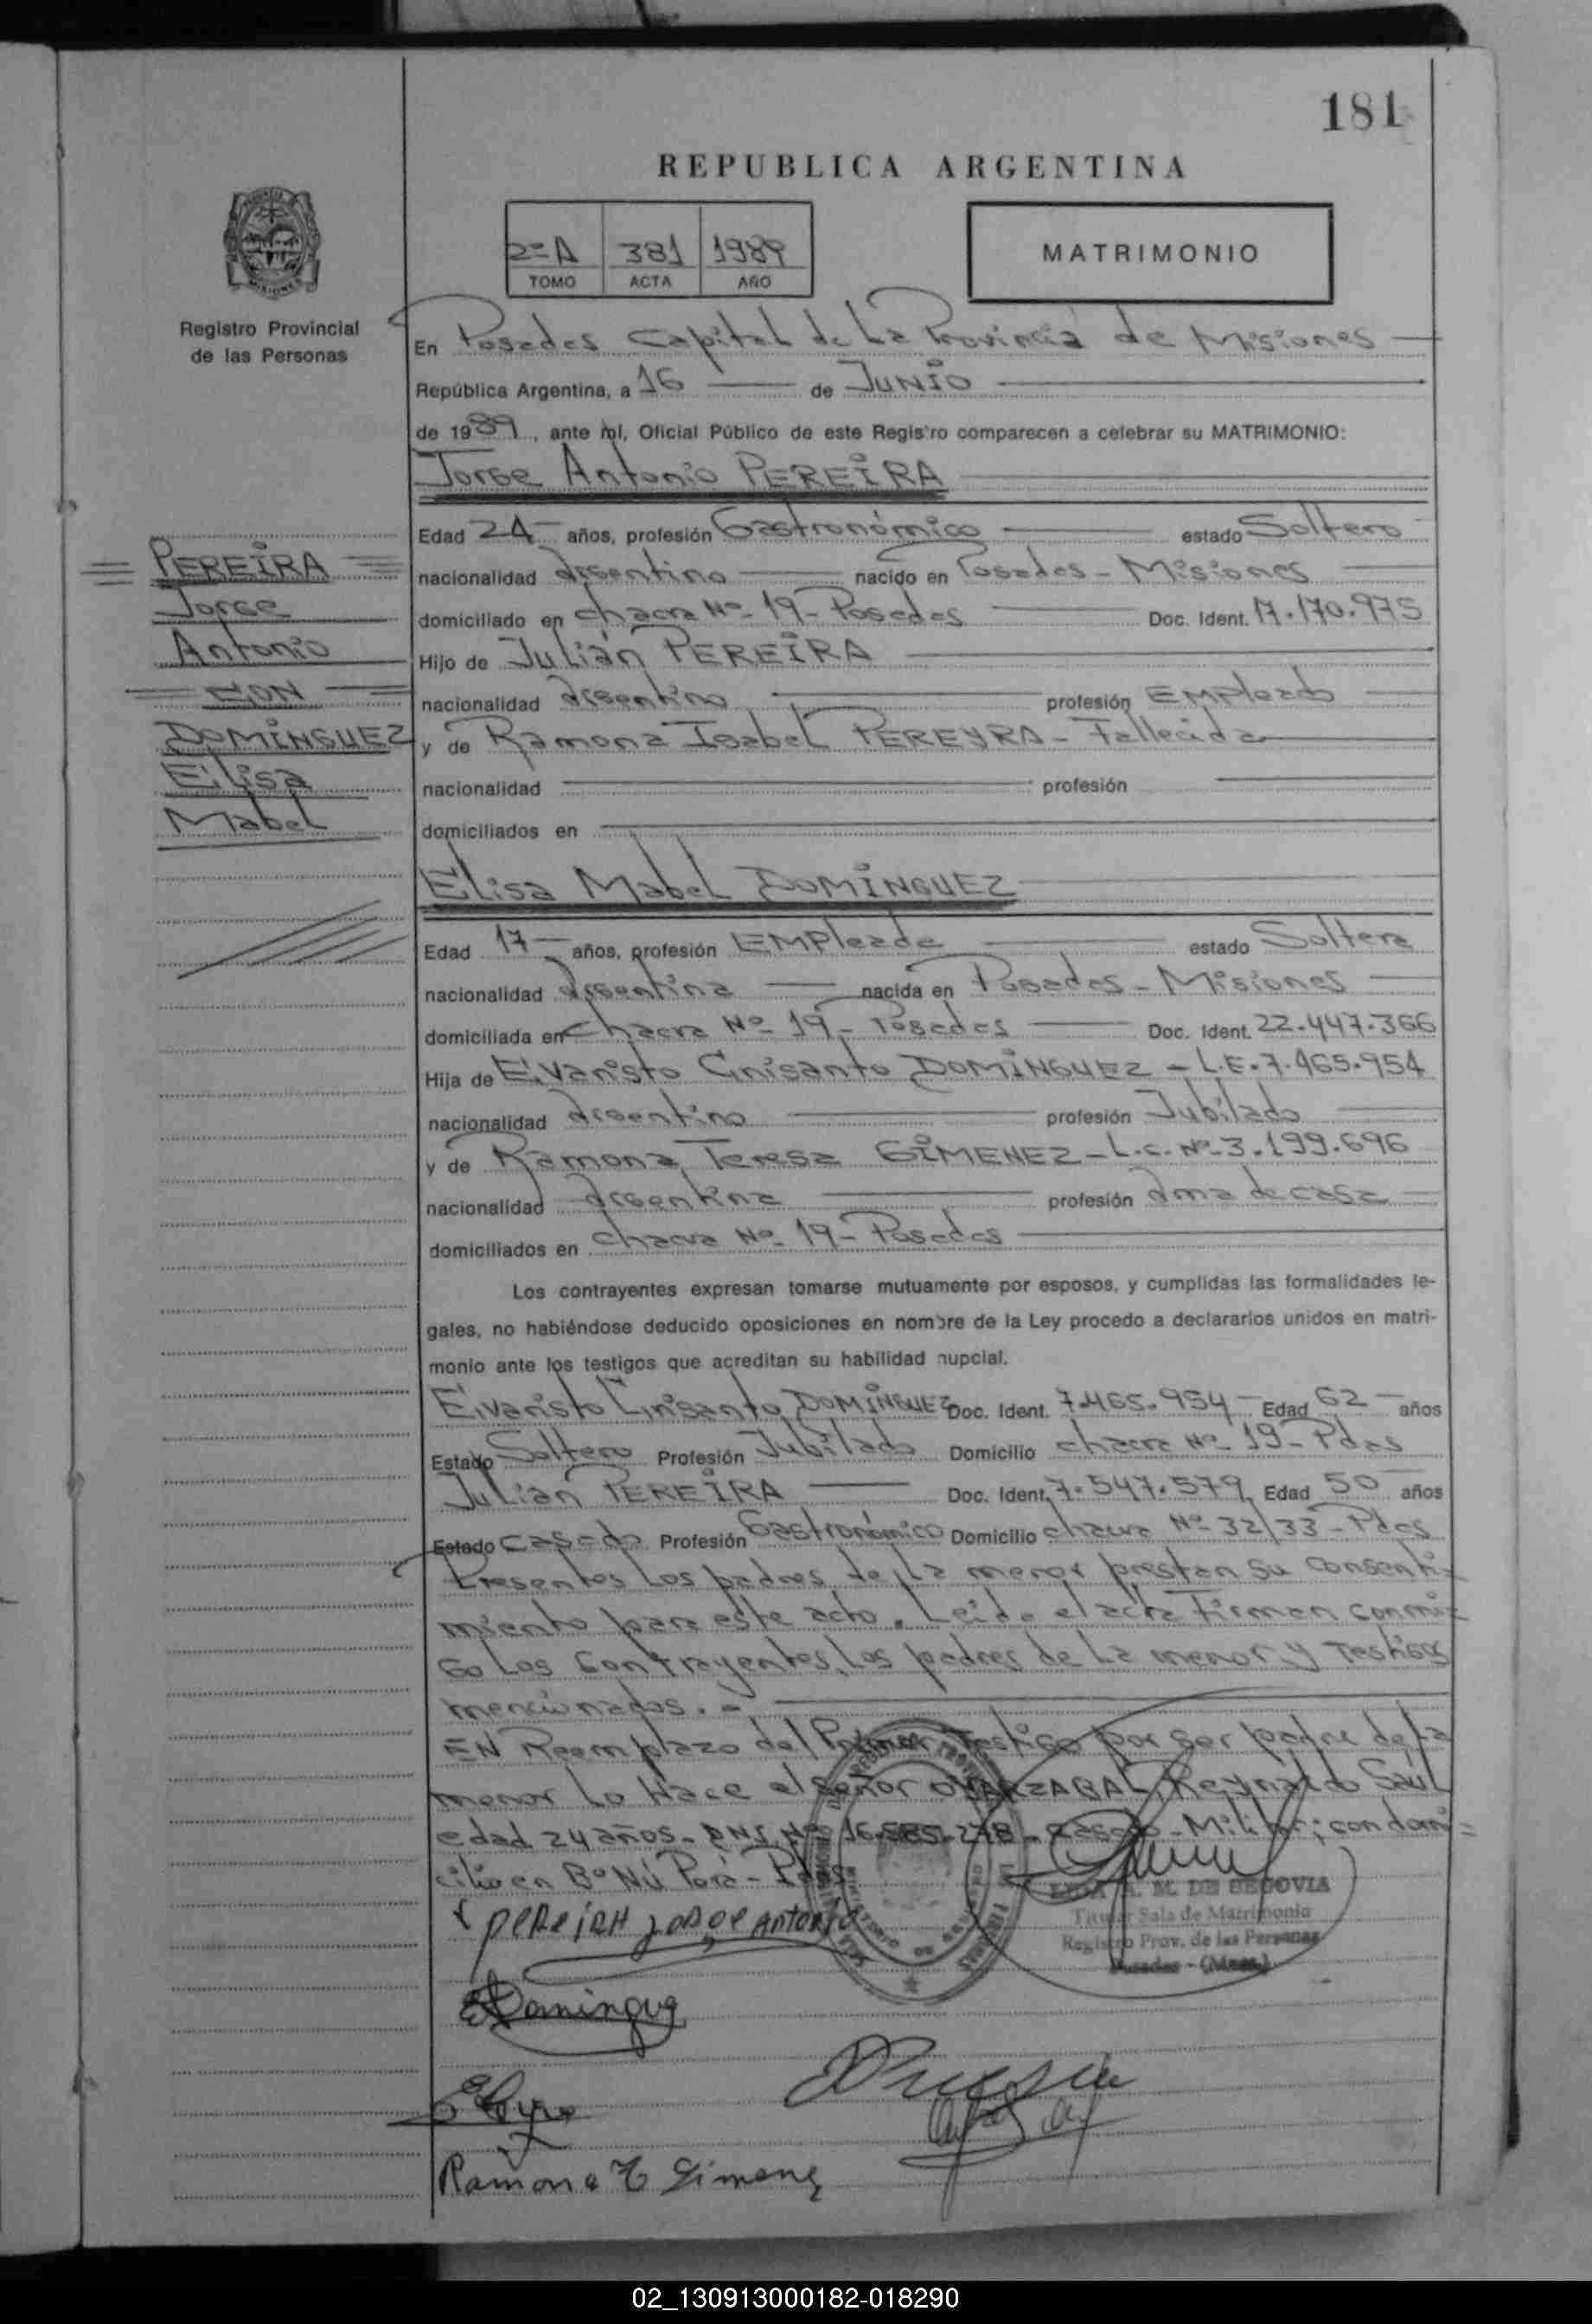 181
REPUBLICA ARGENTINA
2=A 381 1989
TOMO ACTA AÑO
MATRIMONIO
Registro Provincial
de las Personas
En Posadas Capital de La Provincia de Misiones
República Argentina, a 16 de JUNIO
de 1989, ante mí, Oficial Público de este Registro comparecen a celebrar su MATRIMONIO:
Jorge Antonio PEREIRA
Edad 24 años, profesión Gastronómico estado Soltero
nacionalidad argentino nacido en Posadas - Misiones
domiciliado en chacra Nº 19 - Posadas Doc. Ident. 17.170.975
Hijo de Julián PEREIRA
nacionalidad argentino profesión Empleado
y de Ramona Isabel PEREYRA - Fallecida
nacionalidad profesión
domiciliados en
PEREIRA
Jorge
Antonio
CON
DOMINGUEZ
Elisa
Mabel
Elisa Mabel DOMINGUEZ
Edad 17 años, profesión Empleada estado Soltera
nacionalidad argentina nacida en Posadas - Misiones
domiciliada en chacra Nº 19 - Posadas Doc. Ident. 22.447.366
Hija de Evaristo Crisanto DOMINGUEZ - L.E. 7.465.954
nacionalidad argentino profesión Jubilado
y de Ramona Teresa GIMENEZ - L.C. Nº 3.199.696
nacionalidad argentina profesión ama de casa
domiciliados en chacra Nº 19 - Posadas
Los contrayentes expresan tomarse mutuamente por esposos, y cumplidas las formalidades le-
gales, no habiéndose deducido oposiciones en nombre de la Ley procedo a declararlos unidos en matri-
monio ante los testigos que acreditan su habilidad nupcial.
Evaristo Crisanto DOMINGUEZ Doc. Ident. 7.465.954 - Edad 62 - años
Estado Soltero Profesión Jubilado Domicilio chacra Nº 19 - Pdas
Julián PEREIRA Doc. Ident. 7.547.579 Edad 50 años
Estado Casado Profesión Gastronómico Domicilio chacra Nº 32/33 - Pdas
Presentes los padres de la menor prestan su consenti-
miento para este acto. Leida el acta Firman conmi-
go los contrayentes, los padres de la menor y testigos
mencionados.=
EN Reemplazo del Primer testigo por ser padre de la
menor lo Hace el señor OYARZABAL, Reynaldo Saúl
edad 24 años - DNI Nº 16.585.278 - casado - Militar; con domi=
cilio en Bº Ñú Porá - Pdas
x PEREIRA JORGE Antonio
A. M. DE SEGOVIA
Titular Sala de Matrimonio
Registro Prov. de las Personas
Posadas - (Mnes.)
E Dominguez
Ramona T Gimenez
02_130913000182-018290